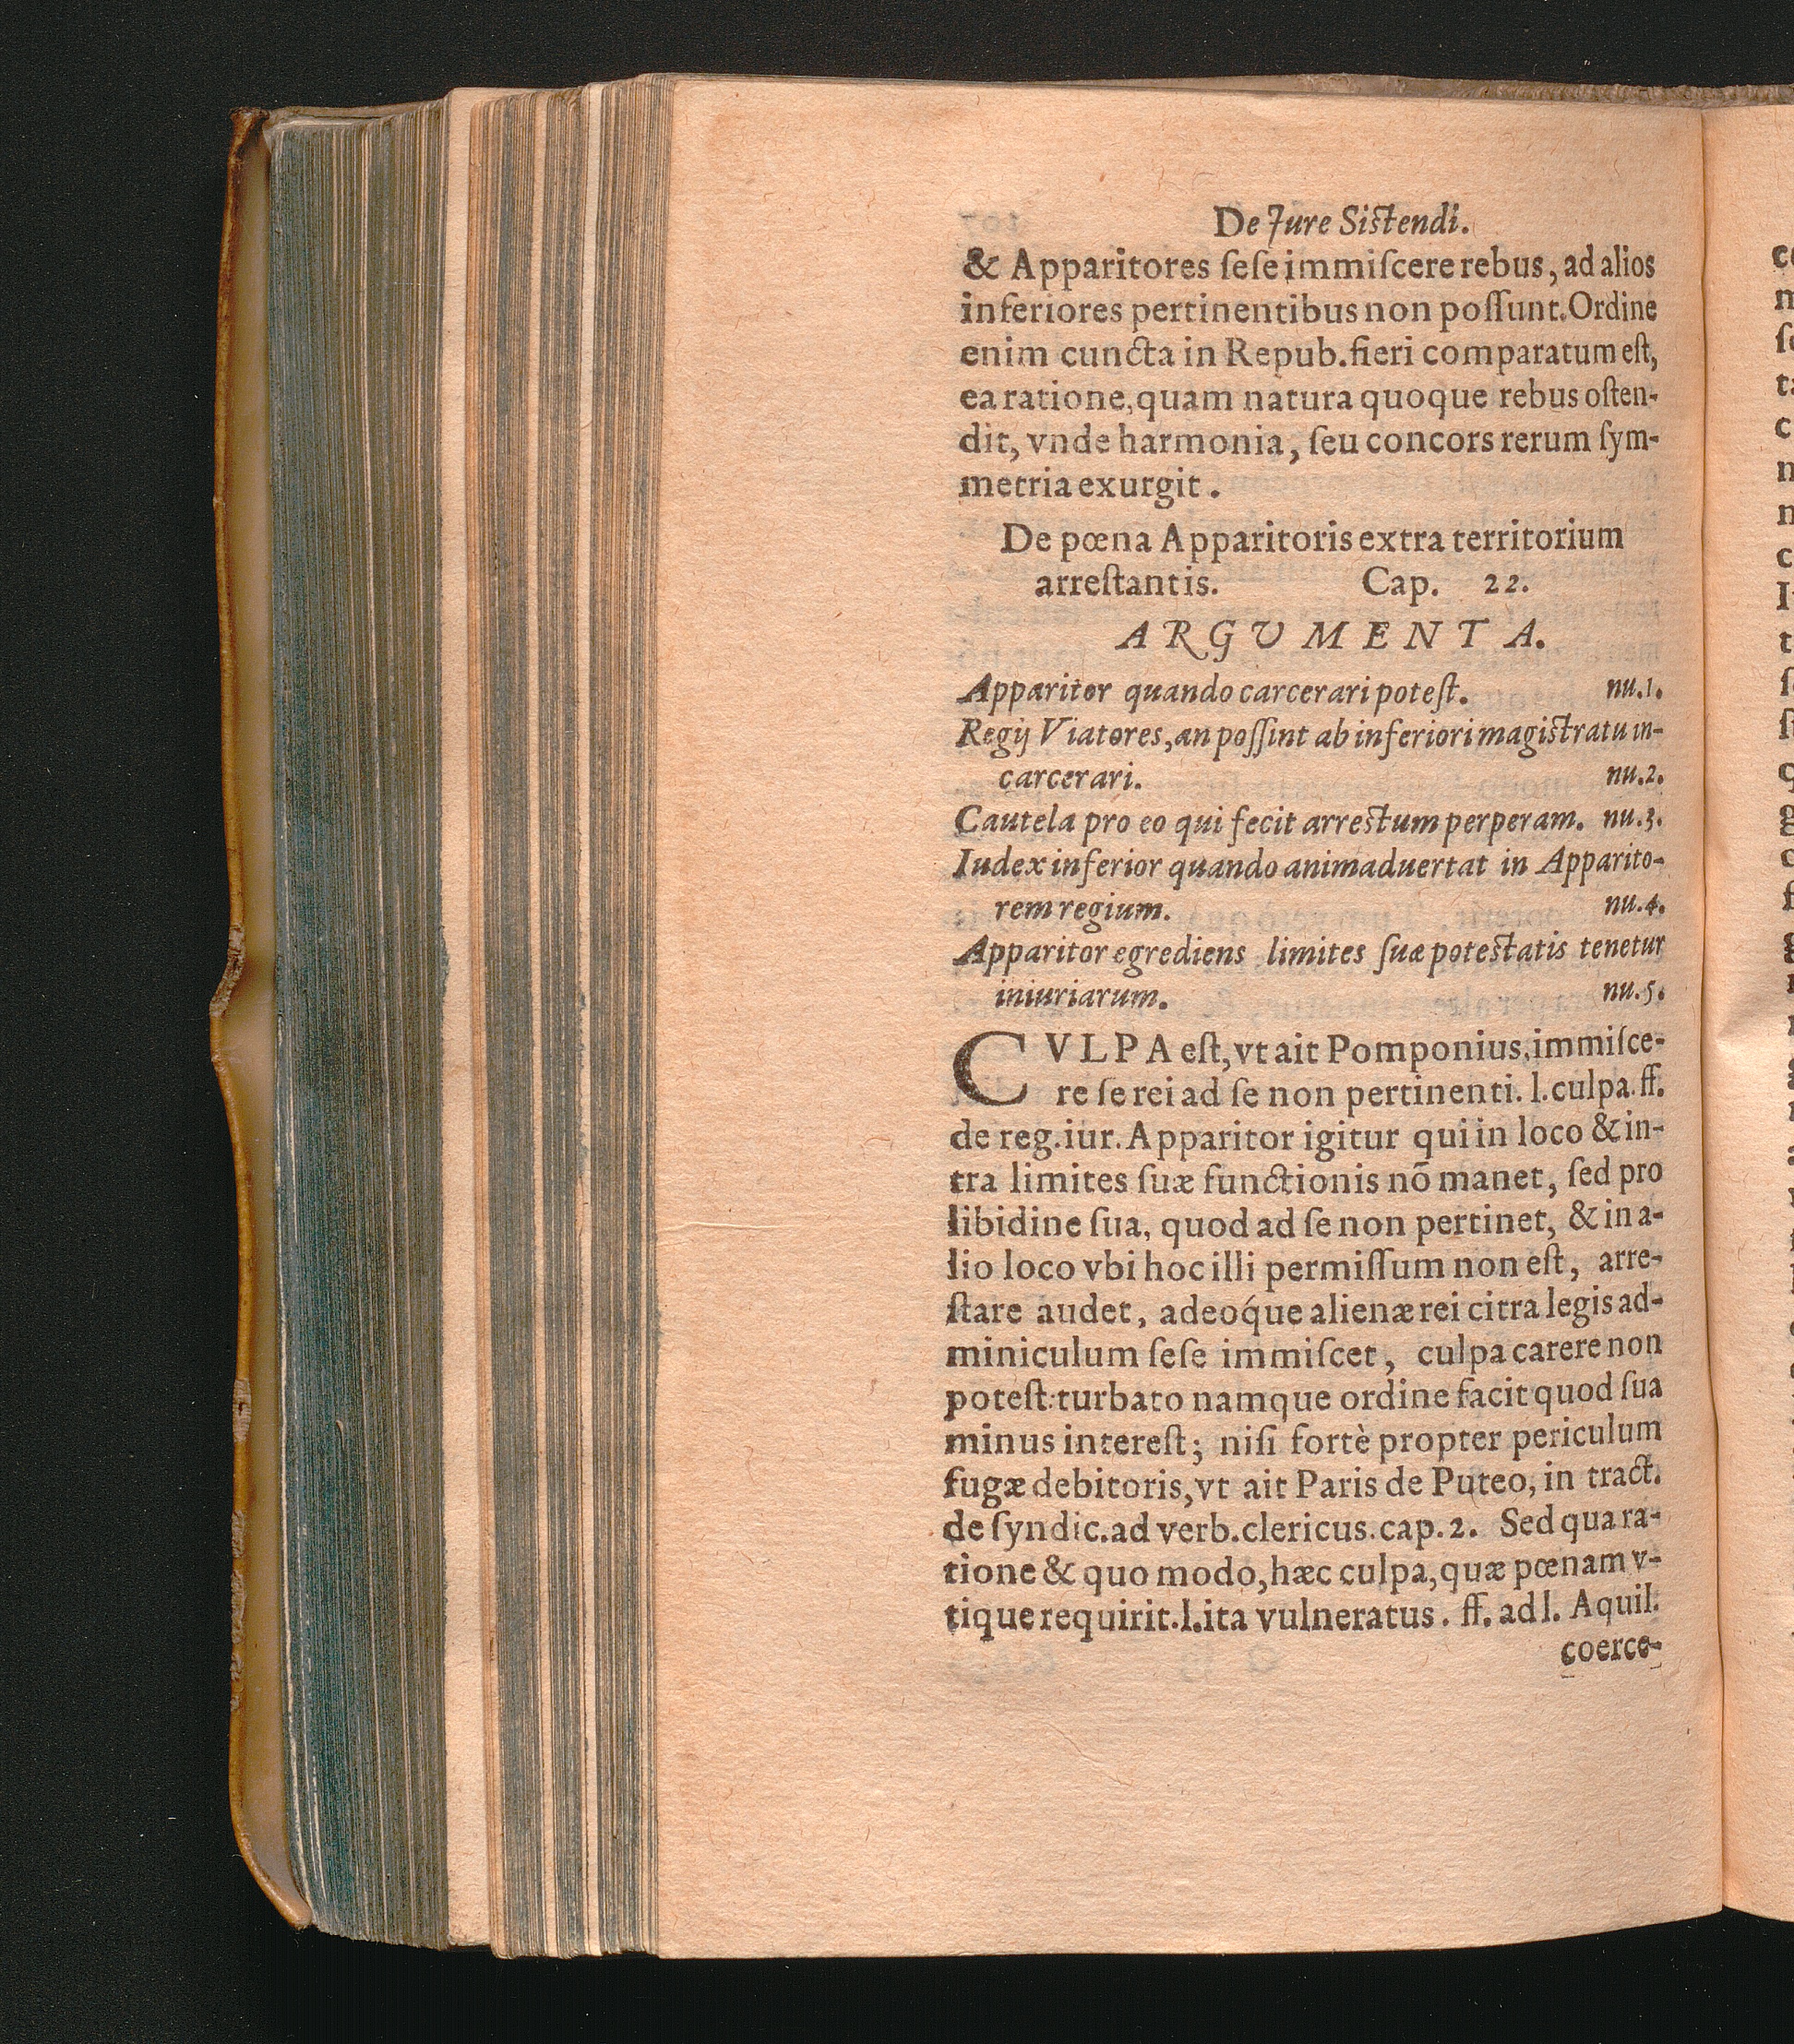 De Jure Sistendi.
& Apparitores ſeſe immiſcere rebus, ad alios
inferiores pertinentibus non poſſunt. Ordine
enim cuncta in Repub. fieri comparatum eſt,
ea ratione, quam natura quoque rebus oſten-
dit, vnde harmonia, ſeu concors rerum ſym-
metria exurgit.
De pœna Apparitoris extra territorium
arreſtantis. Cap. 22.
ARGVMENTA.
Apparitor quando carcerari poteſt. nu.1.
Regij Viatores, an poſſint ab inferiori magistratu in-
carcerari. nu.2.
Cautela pro eo qui fecit arrestum perperam. nu.3.
Iudex inferior quando animaduertat in Apparito-
rem regium. nu.4.
Apparitor egrediens limites ſuæ potestatis tenetur
iniuriarum. nu.5.
CVLPA eſt, vt ait Pomponius, immiſce-
re ſe rei ad ſe non pertinenti. l. culpa. ff.
de reg. iur. Apparitor igitur qui in loco & in-
tra limites ſuæ functionis nõ manet, ſed pro
libidine ſua, quod ad ſe non pertinet, & in a-
lio loco vbi hoc illi permiſſum non eſt, arre-
ſtare audet, adeóque alienæ rei citra legis ad-
miniculum ſeſe immiſcet, culpa carere non
poteſt: turbato namque ordine facit quod ſua
minus intereſt; niſi fortè propter periculum
fugæ debitoris, vt ait Paris de Puteo, in tract.
de ſyndic. ad verb. clericus. cap. 2. Sed qua ra-
tione & quo modo, hæc culpa, quæ pœnam v-
tique requirit. l. ita vulneratus. ff. ad l. Aquil.
coerce-